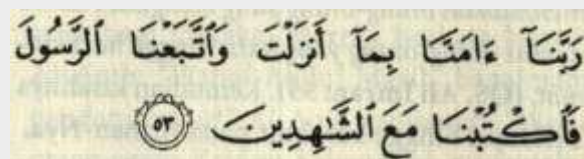 رَبَّنَآ ءَامَنَّا بِمَآ أَنزَلْتَ وَٱتَّبَعْنَا ٱلرَّسُولَ
فَٱكْتُبْنَا مَعَ ٱلشَّٰهِدِينَ ٥٣